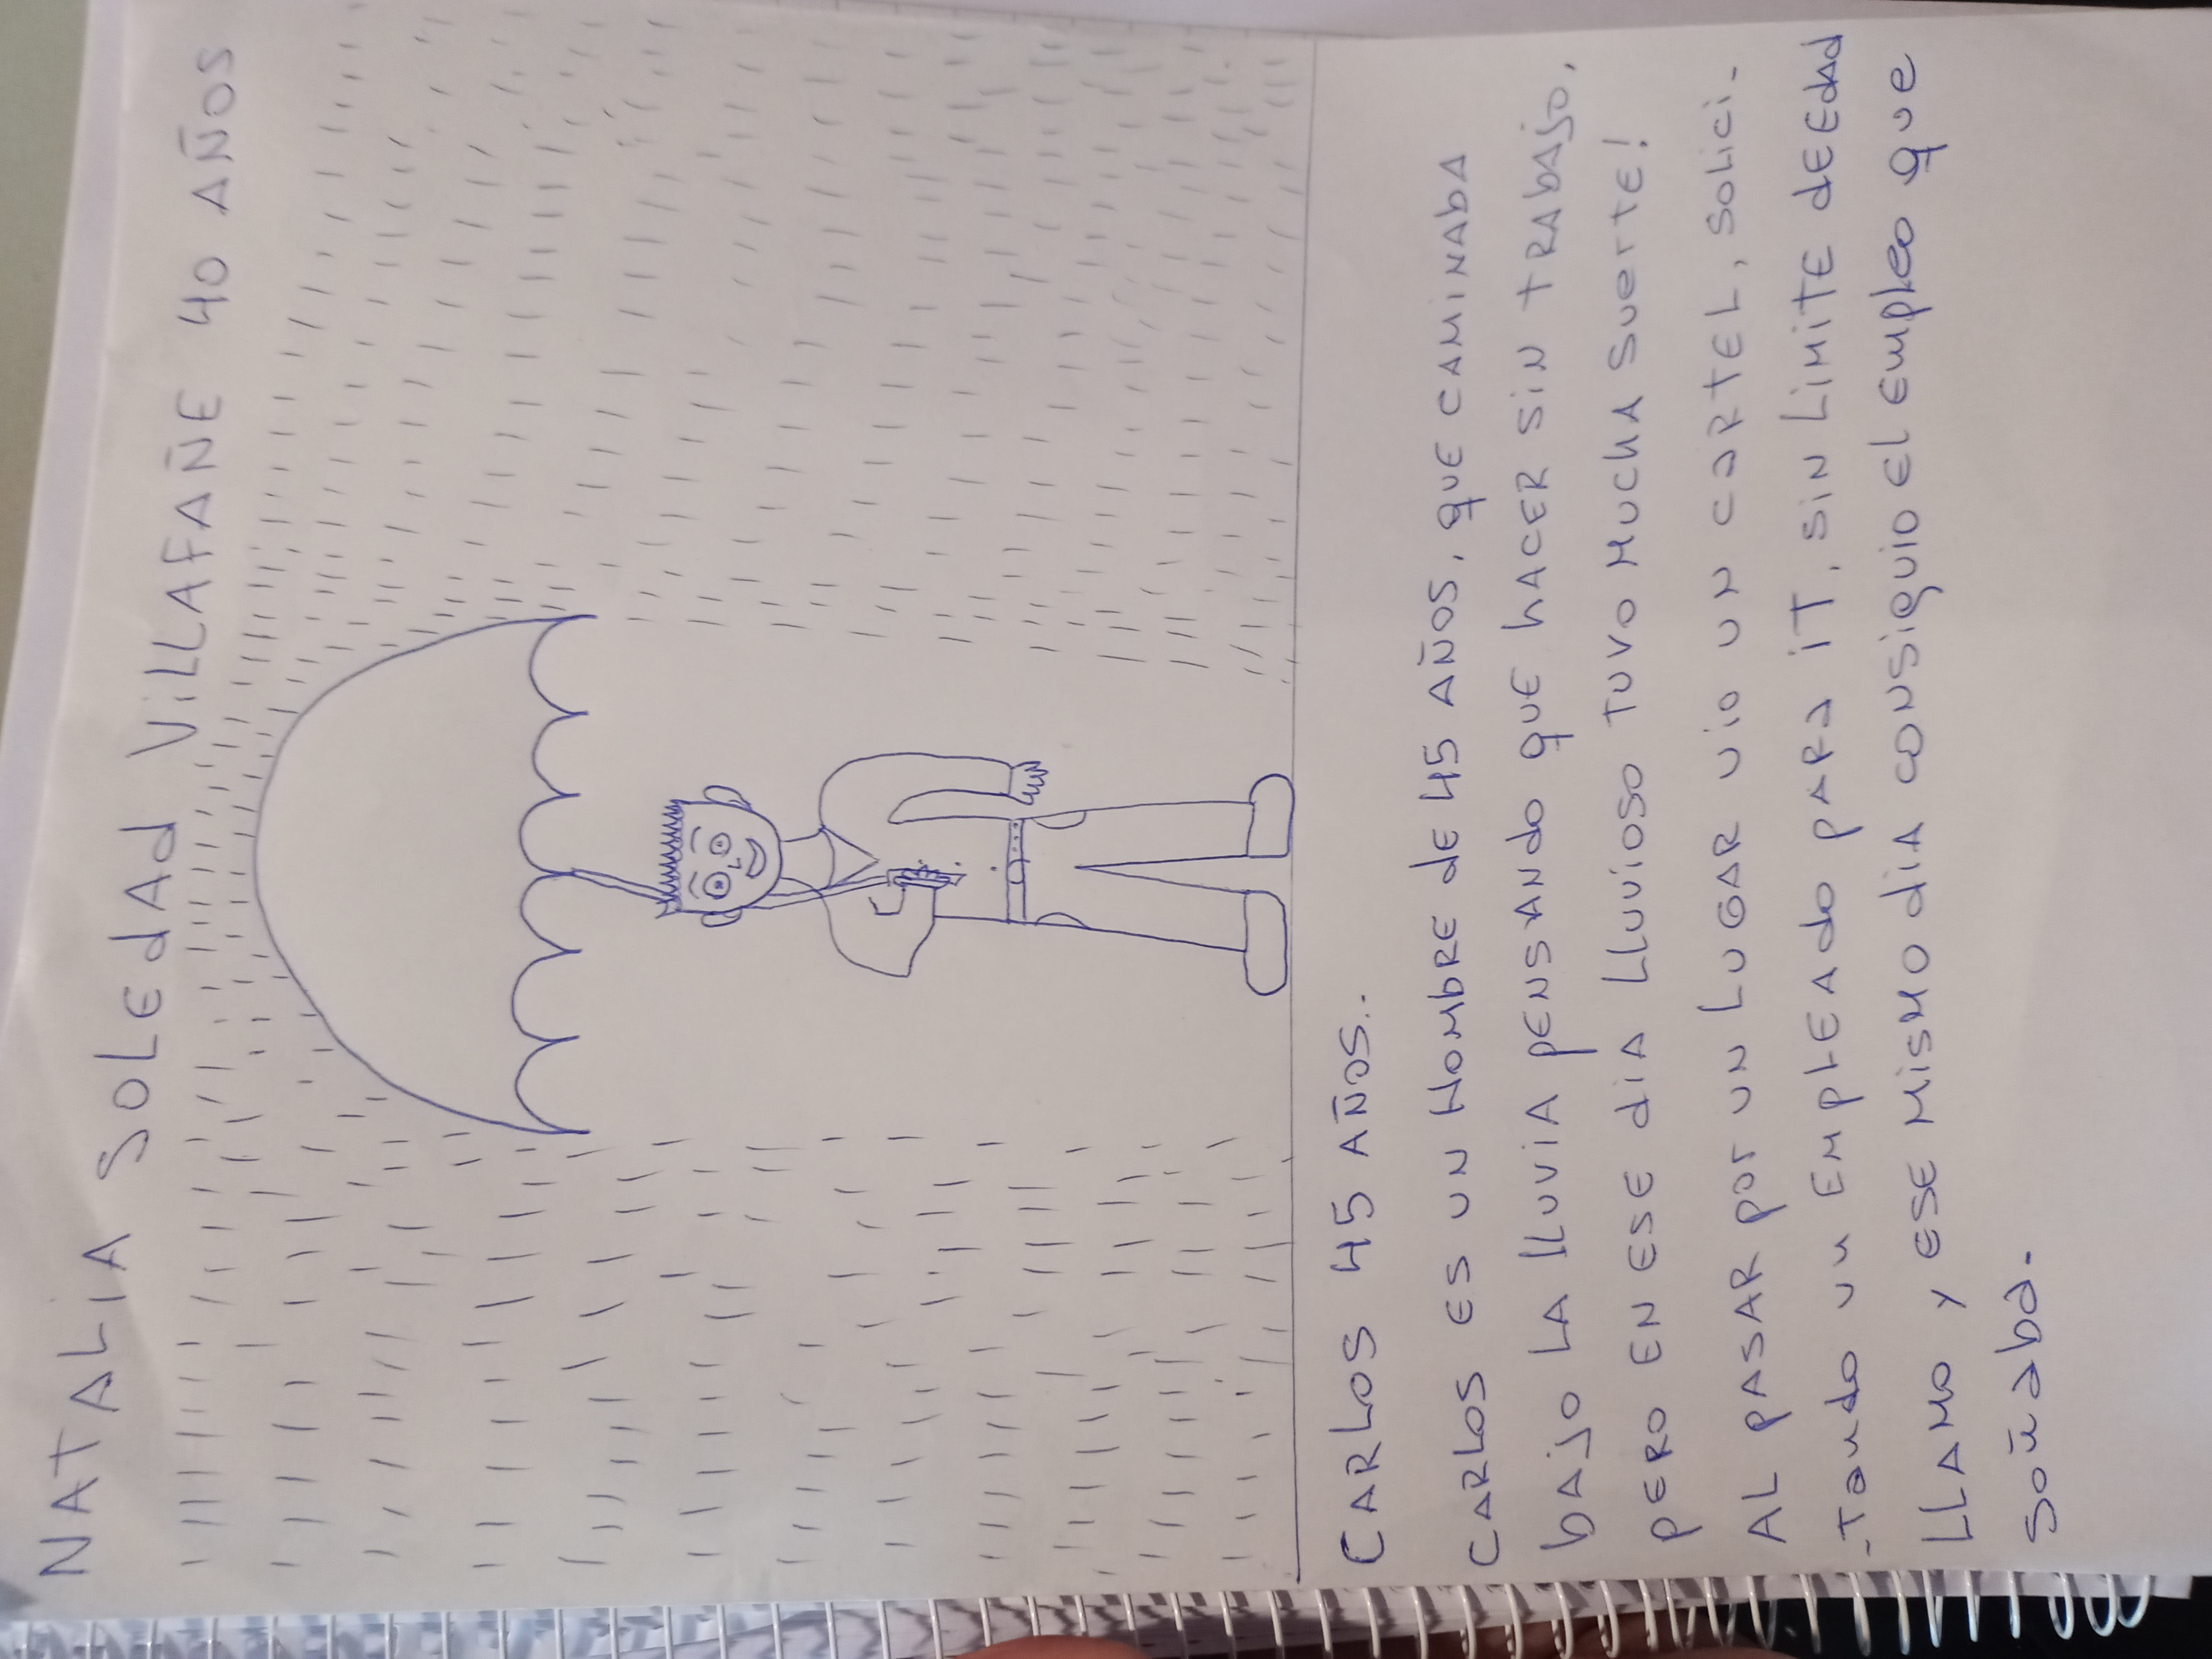 NATALIA SOLEDAD VILLAFAÑE 40 AÑOS
CARLOS 45 AÑOS..
CARLOS ES UN HOMBRE DE 45 AÑOS, QUE CAMINABA
BAJO LA LLUVIA PENSANDO QUE HACER SIN TRABAJO,
PERO EN ESE DIA LLUVIOSO TUVO MUCHA SUERTE!
AL PASAR POR UN LUGAR VIO UN CARTEL, SOLICI-
-TANDO UN EMPLEADO PARA IT, SIN LIMITE DE EDAD
LLAMO Y ESE MISMO DIA CONSIGUIO EL EMPLEO QUE
SOÑABA.